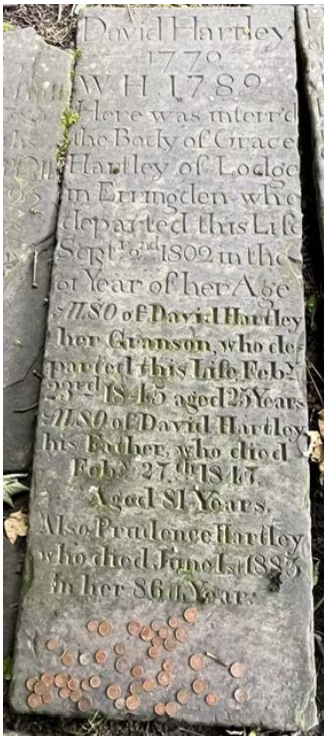 David Hartley
1770
W. H. 1789
Here was interr'd
the Body of Grace
Hartley of Lodge
in Erringden who
departed this Life
Septr 2nd 1802 in the
61 Year of her Age
ALSO of David Hartley
her Granson, who de-
parted this Life Feby
23rd 1845 aged 25 Years
ALSO of David Hartley
his Father, who died
Feby 27th 1847.
Aged 81 Years.
Also Prudence Hartley
who died June 1st 1885
in her 86th Year.